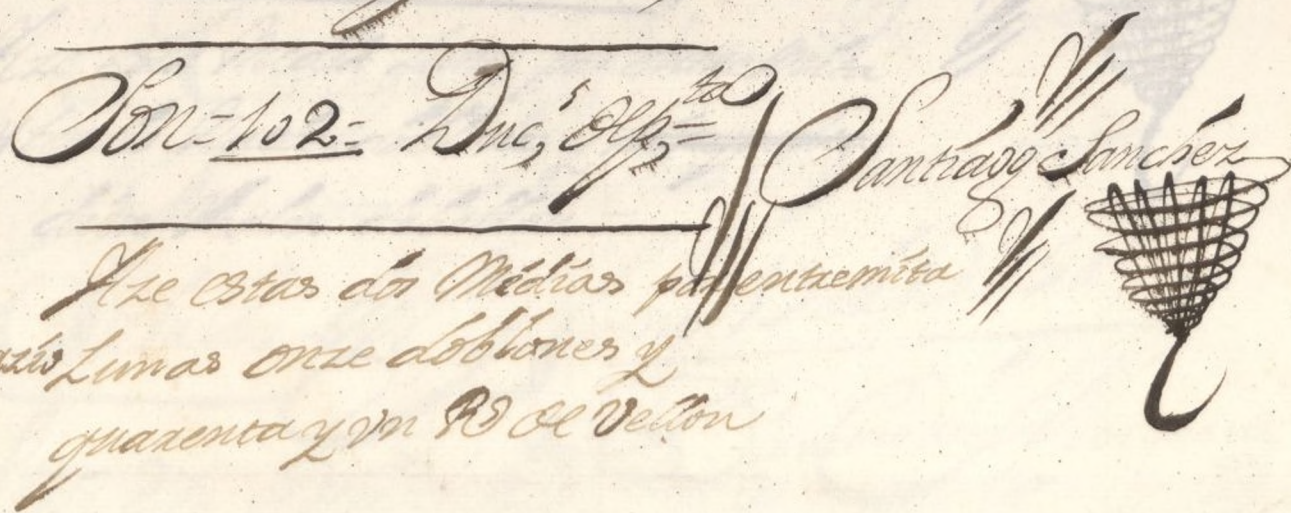 Son=102= Duc,s de p,ta=
Santiago Sanchez
estas dos Medias par entremita
Lunas onze doblones y
quarenta y vn Rs de Vellon